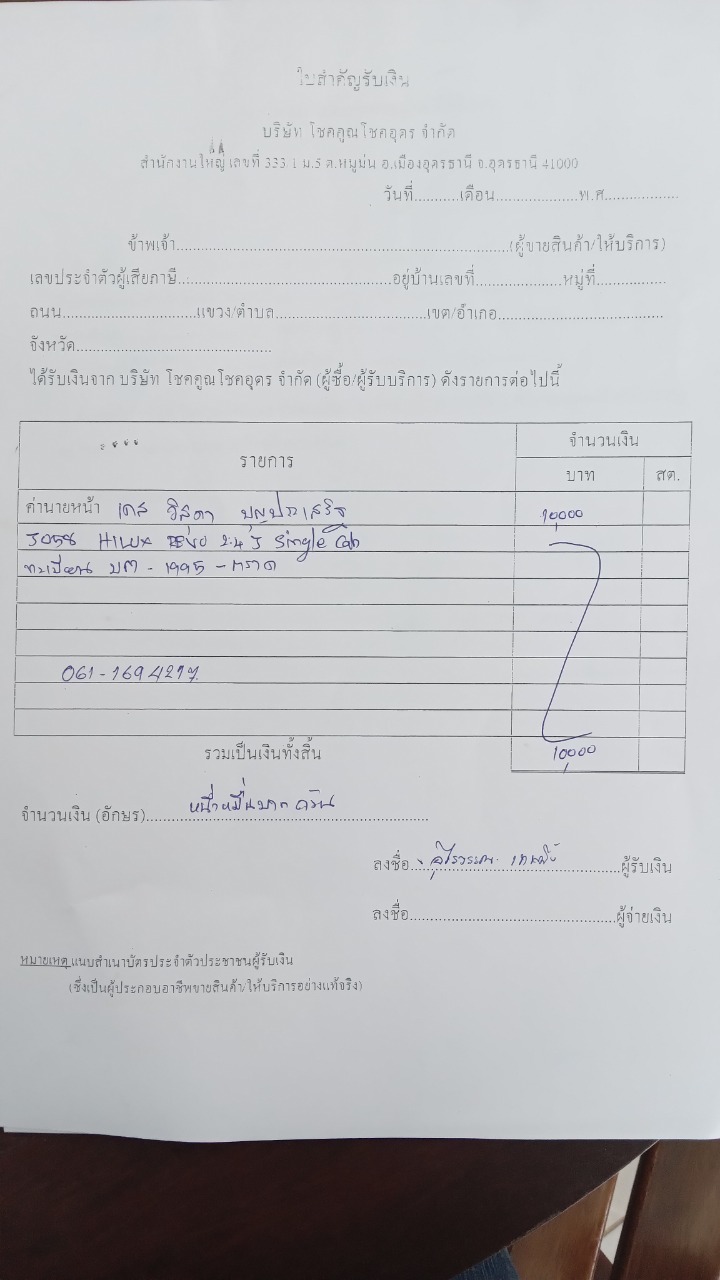 ใบสำคัญรับเงิน
บริษัท โชคคูณโชคอุดร จำกัด
สำนักงานใหญ่ เลขที่ 333/1 ม.5 ต.หมูม่น อ.เมืองอุดรธานี จ.อุดรธานี 41000
วันที่...........เดือน....................พ.ศ..................
ข้าพเจ้า....................................................................................(ผู้ขายสินค้า/ให้บริการ)
เลขประจำตัวผู้เสียภาษี..:...................................................อยู่บ้านเลขที่......................หมู่ที่.................
ถนน..................................แขวง/ตำบล......................................เขต/อำเภอ..........................................
จังหวัด.................................................
ได้รับเงินจาก บริษัท โชคคูณโชคอุดร จำกัด (ผู้ซื้อ/ผู้รับบริการ) ดังรายการต่อไปนี้
รายการ จำนวนเงิน
บาท สต.
ค่านายหน้า เคส วิสดา 10,000
Hilux Revo 2.4 J Single Cab
ทะเบียน บต - 1995 - ตราด
061-169 4217
รวมเป็นเงินทั้งสิ้น 10,000
จำนวนเงิน (อักษร)...หนึ่งหมื่นบาท...
ลงชื่อ....................................................ผู้รับเงิน
ลงชื่อ....................................................ผู้จ่ายเงิน
หมายเหตุ แนบสำเนาบัตรประจำตัวประชาชนผู้รับเงิน
(ซึ่งเป็นผู้ประกอบอาชีพขายสินค้า/ให้บริการอย่างแท้จริง)